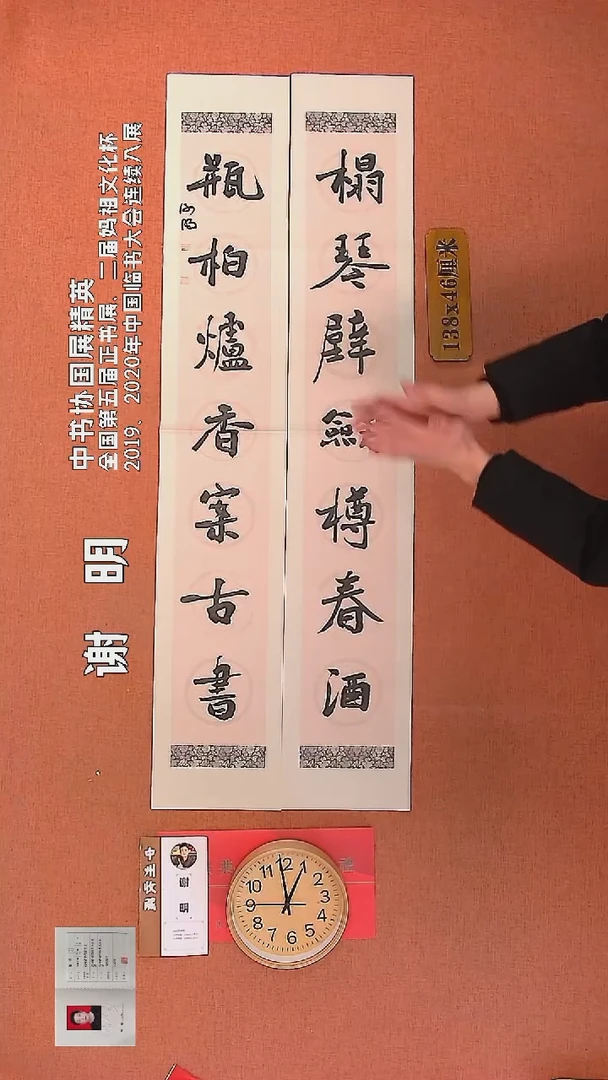 榻琴壁劍樽春酒
瓶柏爐香案古書
138x46厘米
中书协国展精英
全国第五届正书展、二届妈祖文化杯
2019、2020年中国临书大会连续入展
谢 明
12
1
2
3
4
5
6
7
8
9
10
11